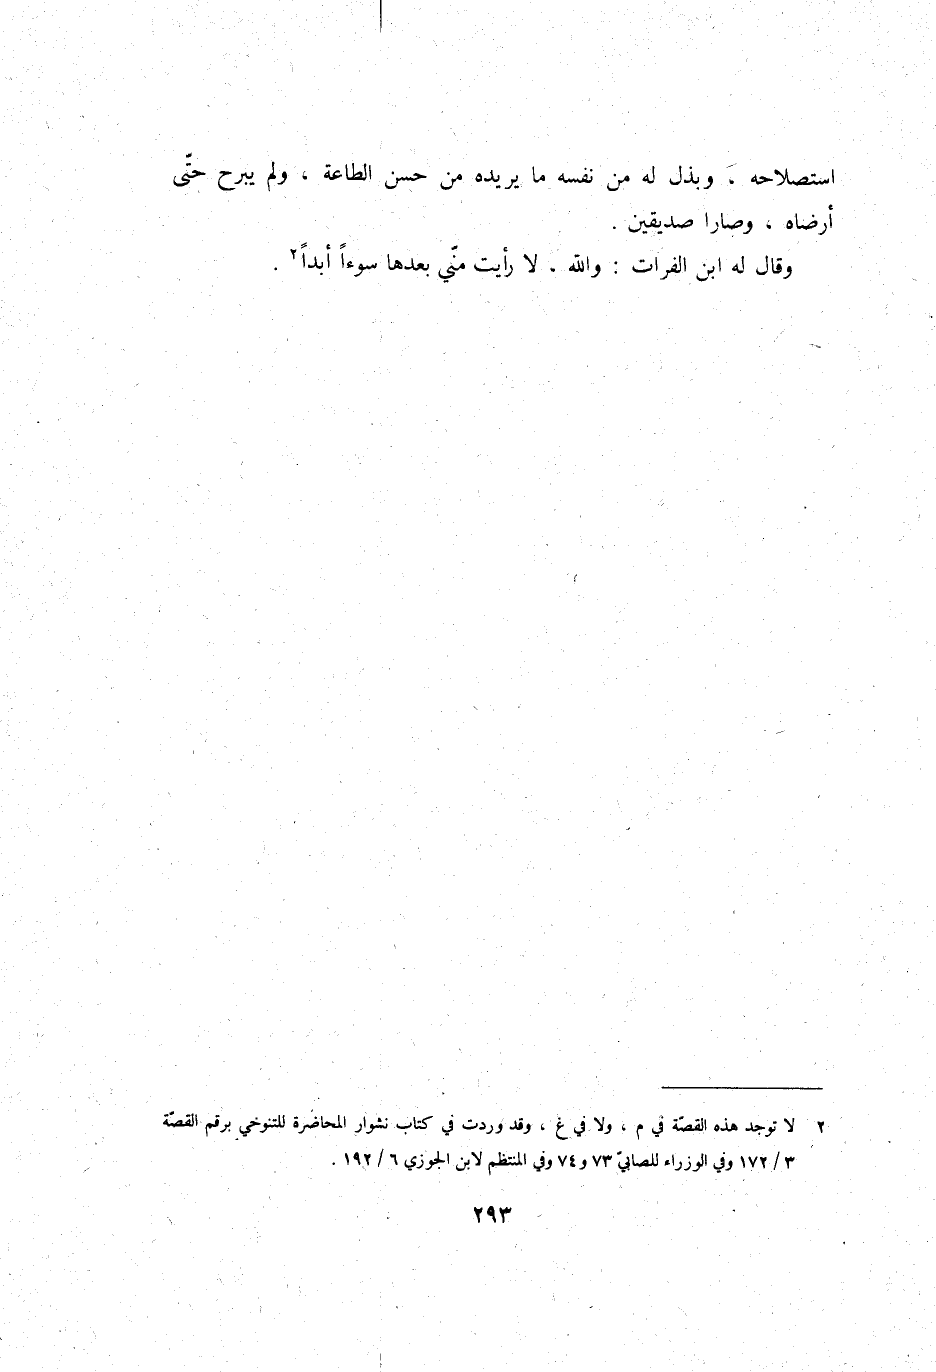 استصلاحه ، وبذل له من نفسه ما يريده من حسن الطاعة ، ولم يبرح حتّى
أرضاه ، وصارا صديقين .
وقال له ابن الفرات : والله . لا رأيت منّي بعدها سوءاً أبداً٢ .
٢ لا توجد هذه القصّة في م ، ولا في غ ، وقد وردت في كتاب نشوار المحاضرة للتنوخي برقم القصّة
٣ / ١٧٢ وفي الوزراء للصابيّ ٧٣ و ٧٤ وفي المنتظم لابن الجوزي ٦ / ١٩٢ .
٢٩٣